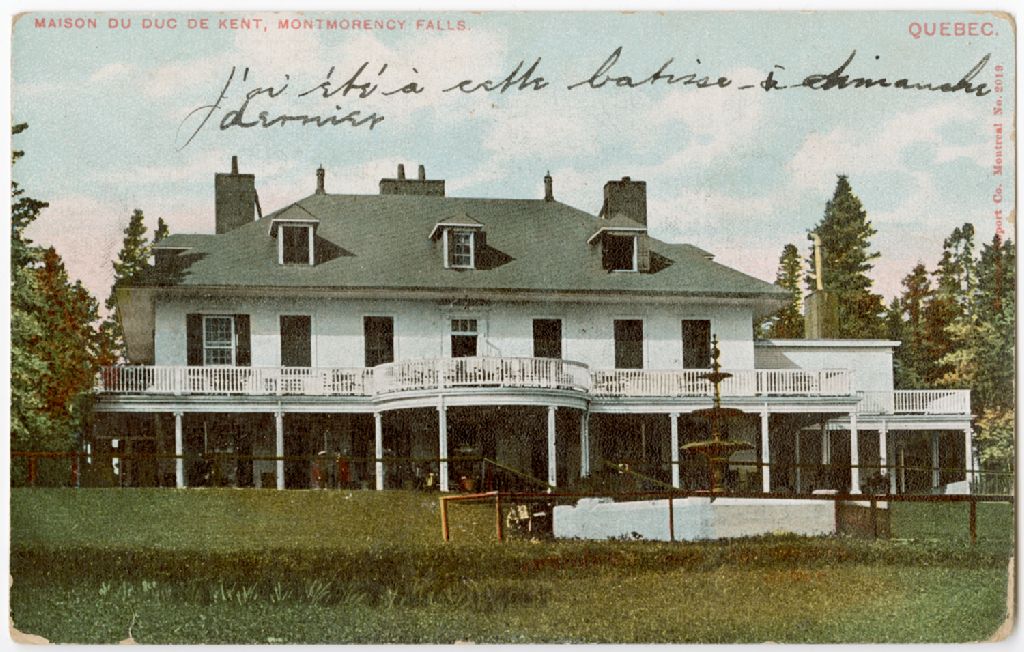 MAISON DU DUC DE KENT, MONTMORENCY FALLS.
QUEBEC.
J'ai été à cette batisse - à dimanche
dernier
port Co. Montreal No. 2019